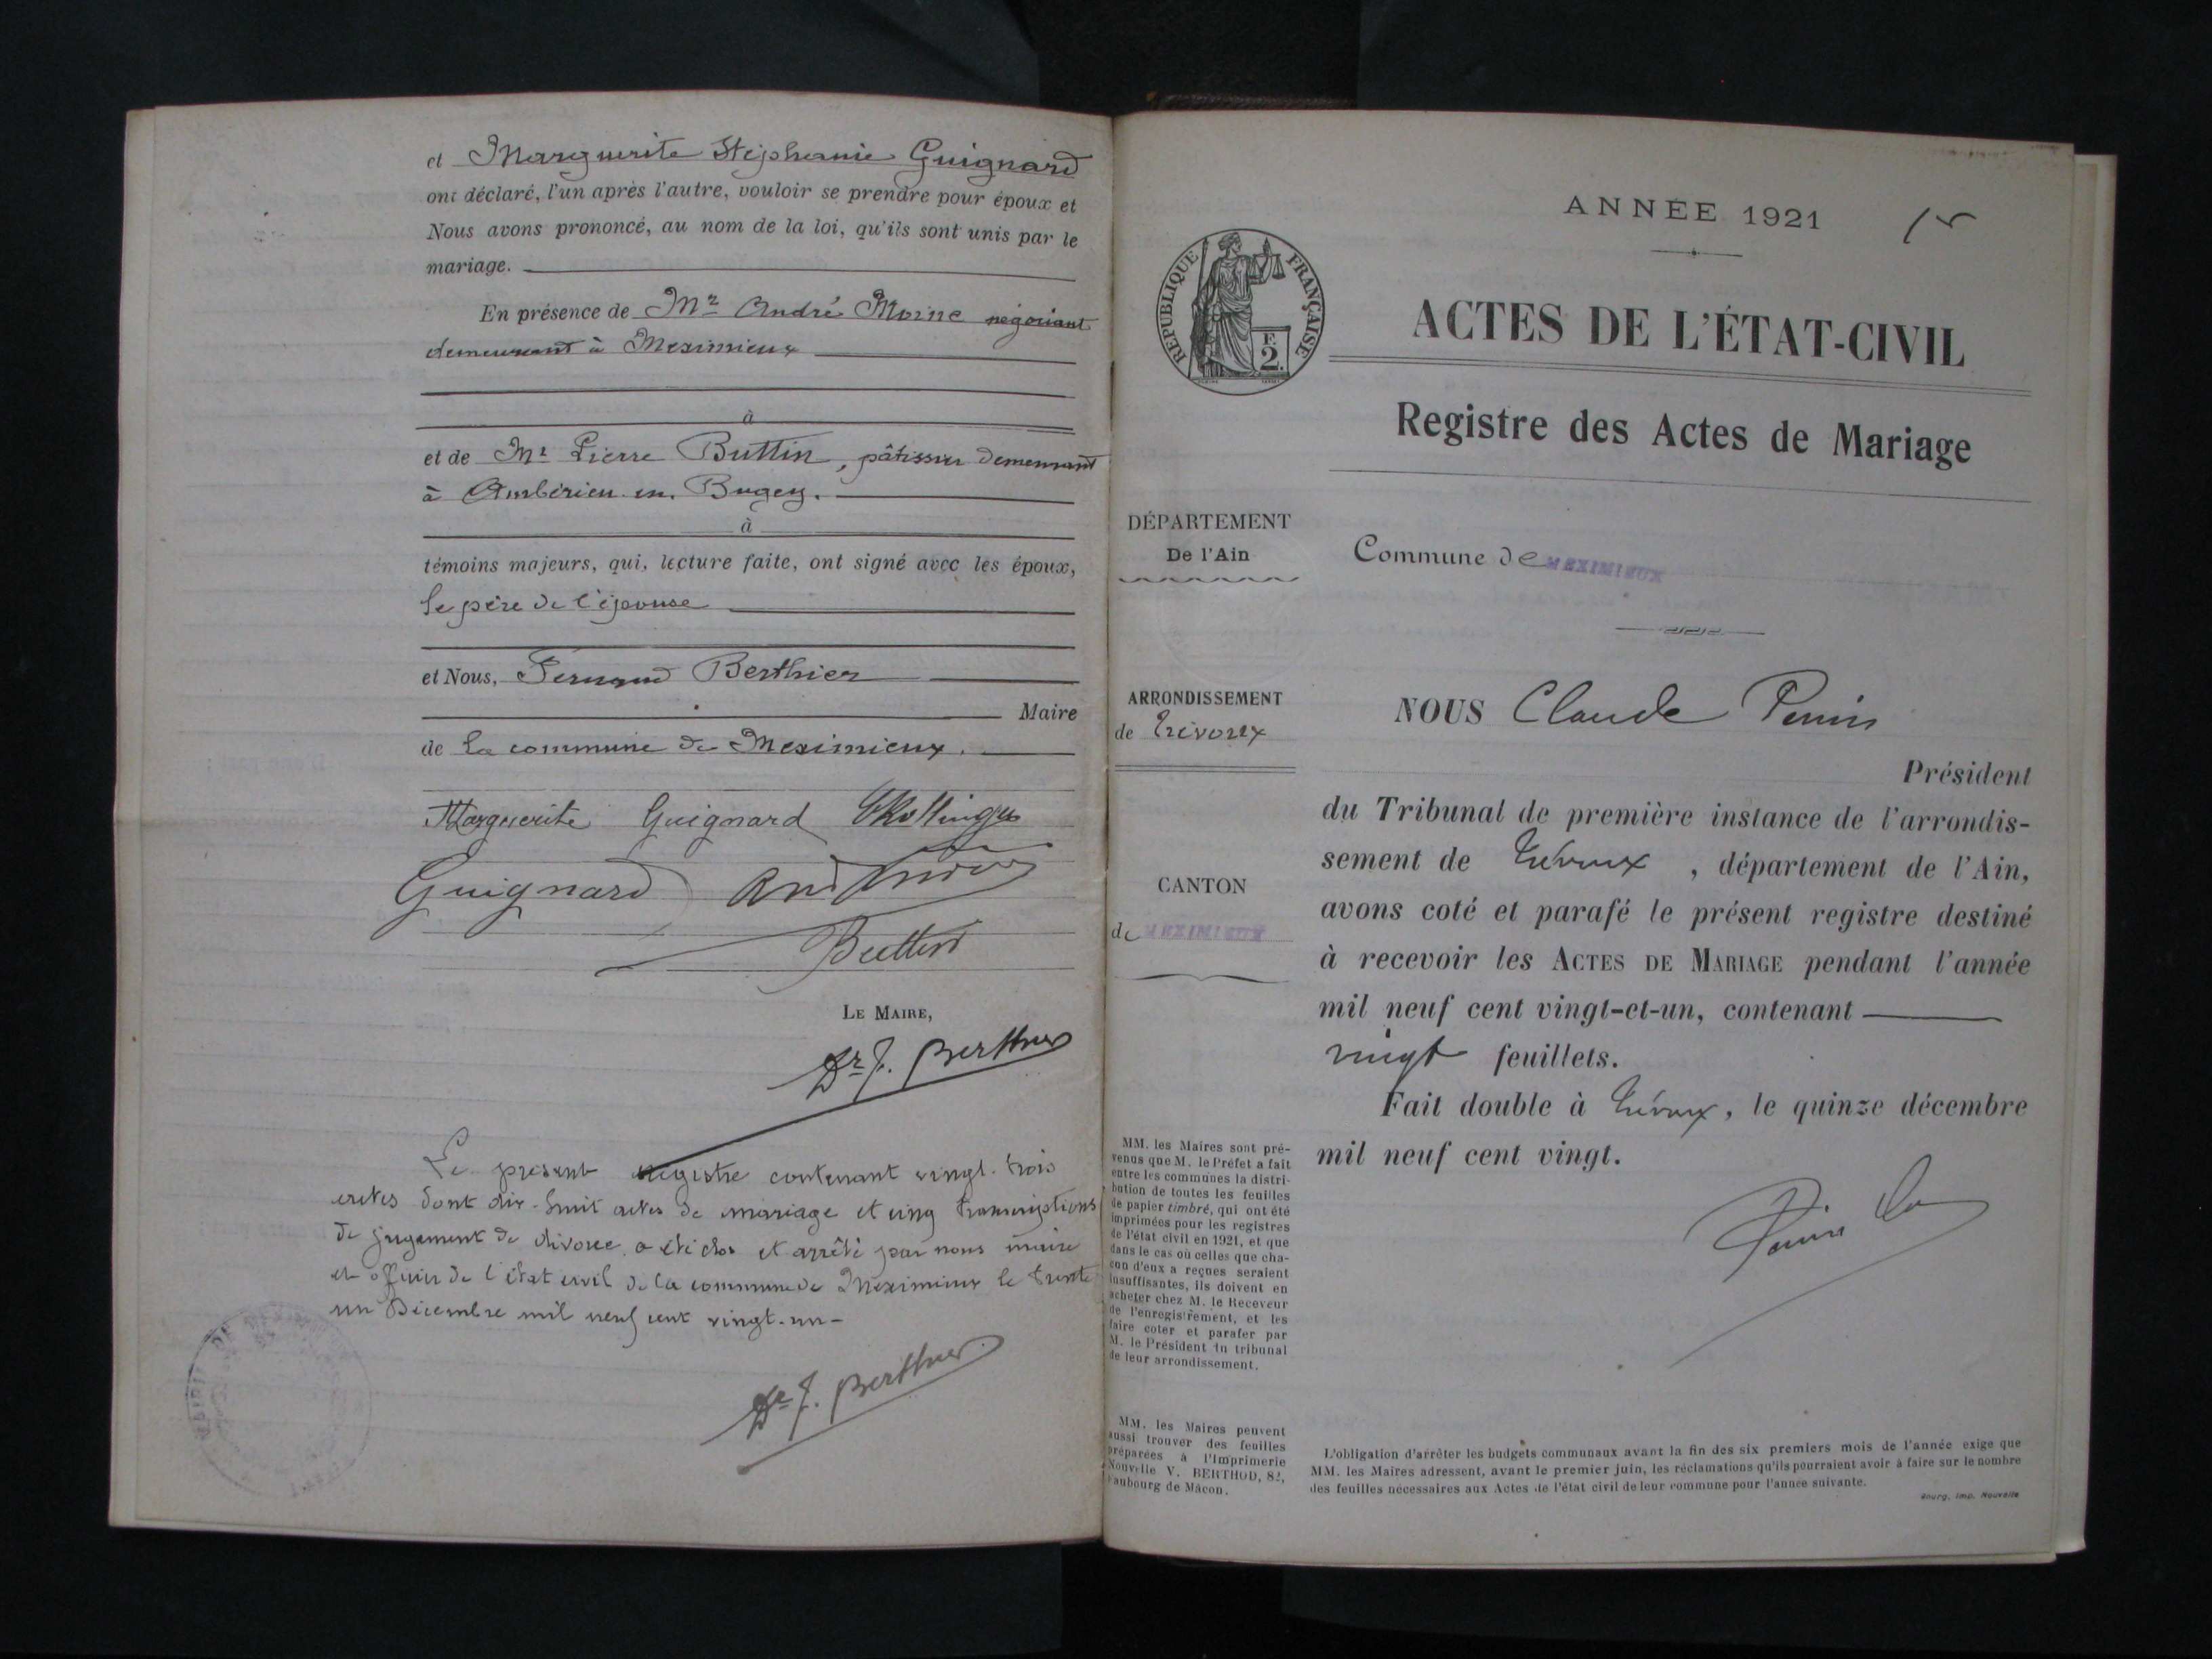 et Marguerite Stéphanie Guignard
ont déclaré, l'un après l'autre, vouloir se prendre pour époux et
Nous avons prononcé, au nom de la loi, qu'ils sont unis par le
mariage.
En présence de Mr André Moine négociant
demeurant à Meximieux
à
et de Mr Pierre Buttin, pâtissier demeurant
à Ambérieu-en-Bugey.
à
témoins majeurs, qui, lecture faite, ont signé avec les époux,
le père de l'épouse
et Nous, Fernand Berthier
Maire
de la commune de Meximieux.
Marguerite Guignard
Guignard
Buttin
LE MAIRE,
Dr F. Berthier
Le présent registre contenant vingt-trois
actes dont dix-huit actes de mariage et cinq transcriptions
de jugement de divorce a été clos et arrêté par nous maire
et officier de l'état civil de la commune de Meximieux le trente
un Décembre mil neuf cent vingt-un-
Dr F. Berthier
ANNÉE 1921
15
RÉPUBLIQUE FRANÇAISE
2
ACTES DE L'ÉTAT-CIVIL
Registre des Actes de Mariage
DÉPARTEMENT
De l'Ain
Commune de MEXIMIEUX
ARRONDISSEMENT
de Trévoux
CANTON
de MEXIMIEUX
NOUS Claude Perrin
Président
du Tribunal de première instance de l'arrondis-
sement de Trévoux, département de l'Ain,
avons coté et parafé le présent registre destiné
à recevoir les ACTES DE MARIAGE pendant l'année
mil neuf cent vingt-et-un, contenant
vingt feuillets.
Fait double à Trévoux, le quinze décembre
mil neuf cent vingt.
MM. les Maires sont pré-
venus que M. le Préfet a fait
entre les communes la distri-
bution de toutes les feuilles
de papier timbré, qui ont été
imprimées pour les registres
de l'état civil en 1921, et que
dans le cas où celles que cha-
cun d'eux a reçues seraient
insuffisantes, ils doivent en
acheter chez M. le Receveur
de l'enregistrement, et les
faire coter et parafer par
M. le Président du tribunal
de leur arrondissement.
MM. les Maires peuvent
aussi trouver des feuilles
préparées à l'Imprimerie
Nouvelle V. BERTHOD, 82,
Faubourg de Mâcon.
L'obligation d'arrêter les budgets communaux avant la fin des six premiers mois de l'année exige que
MM. les Maires adressent, avant le premier juin, les réclamations qu'ils pourraient avoir à faire sur le nombre
des feuilles nécessaires aux Actes de l'état civil de leur commune pour l'année suivante.
Bourg, Imp. Nouvelle